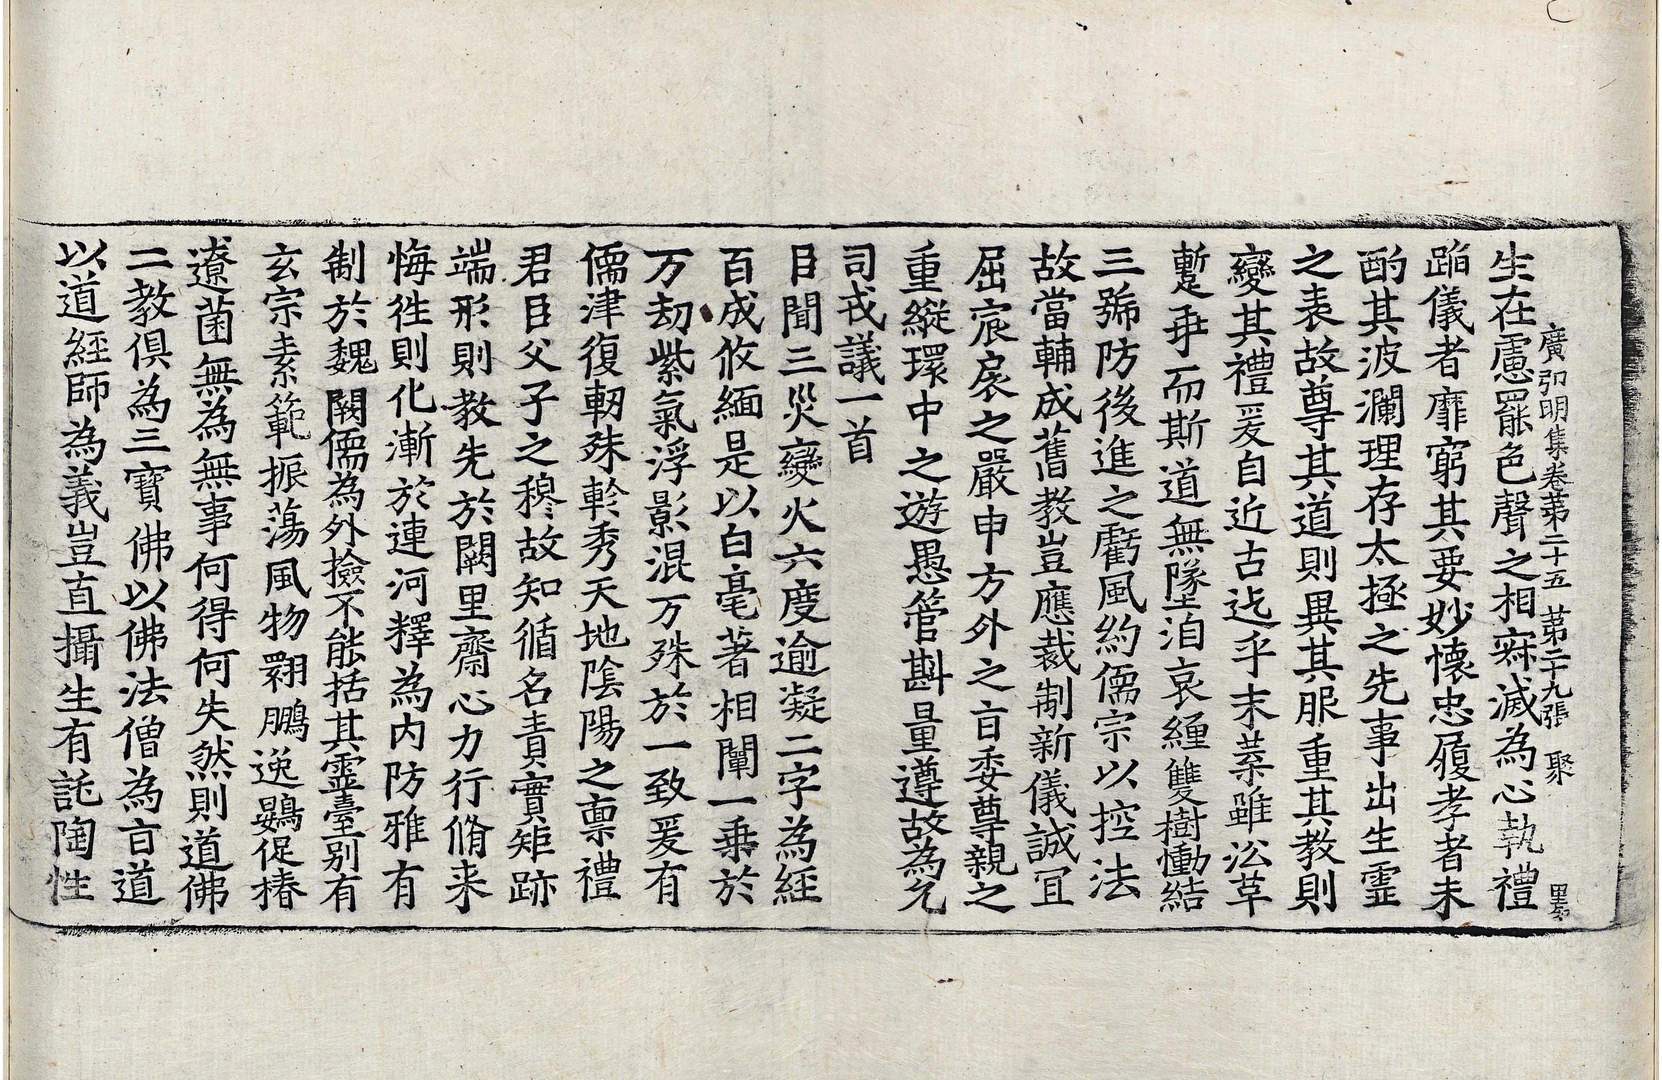 廣弘明集卷第二十五 第二十九張 聚
生在慮罷色聲之相寂滅為心執禮
蹈儀者靡窮其要妙懷忠履孝者未
酌其波瀾理存太極之先事出生靈
之表故尊其道則異其服重其教則
變其禮爰自近古迄乎末葉雖沿革
蹔乖而斯道無墜洎哀纏雙樹慟結
三號防後進之虧風約儒宗以控法
故當輔成舊教豈應裁制新儀誠冝
屈宸扆之嚴申方外之旨委尊親之
重縱環中之遊愚管斟量遵故為允
司戎議一首
臣聞三災變火六度逾凝二字為經
百成攸緬是以白毫著相闡一乗於
万劫紫氣浮影混万殊於一致爰有
儒津復軔殊軫秀天地陰陽之禀禮
君臣父子之穆故知循名責實矩跡
端形則教先於闕里齋心力行脩来
悔徃則化漸於連河釋為内防雅有
制於魏闕儒為外撿不能括其靈臺別有
玄宗素範振蕩風物翾鵬逸鷃促椿
遼菌無為無事何得何失然則道佛
二教俱為三寶佛以佛法僧為旨道
以道經師為義豈直攝生有託陶性